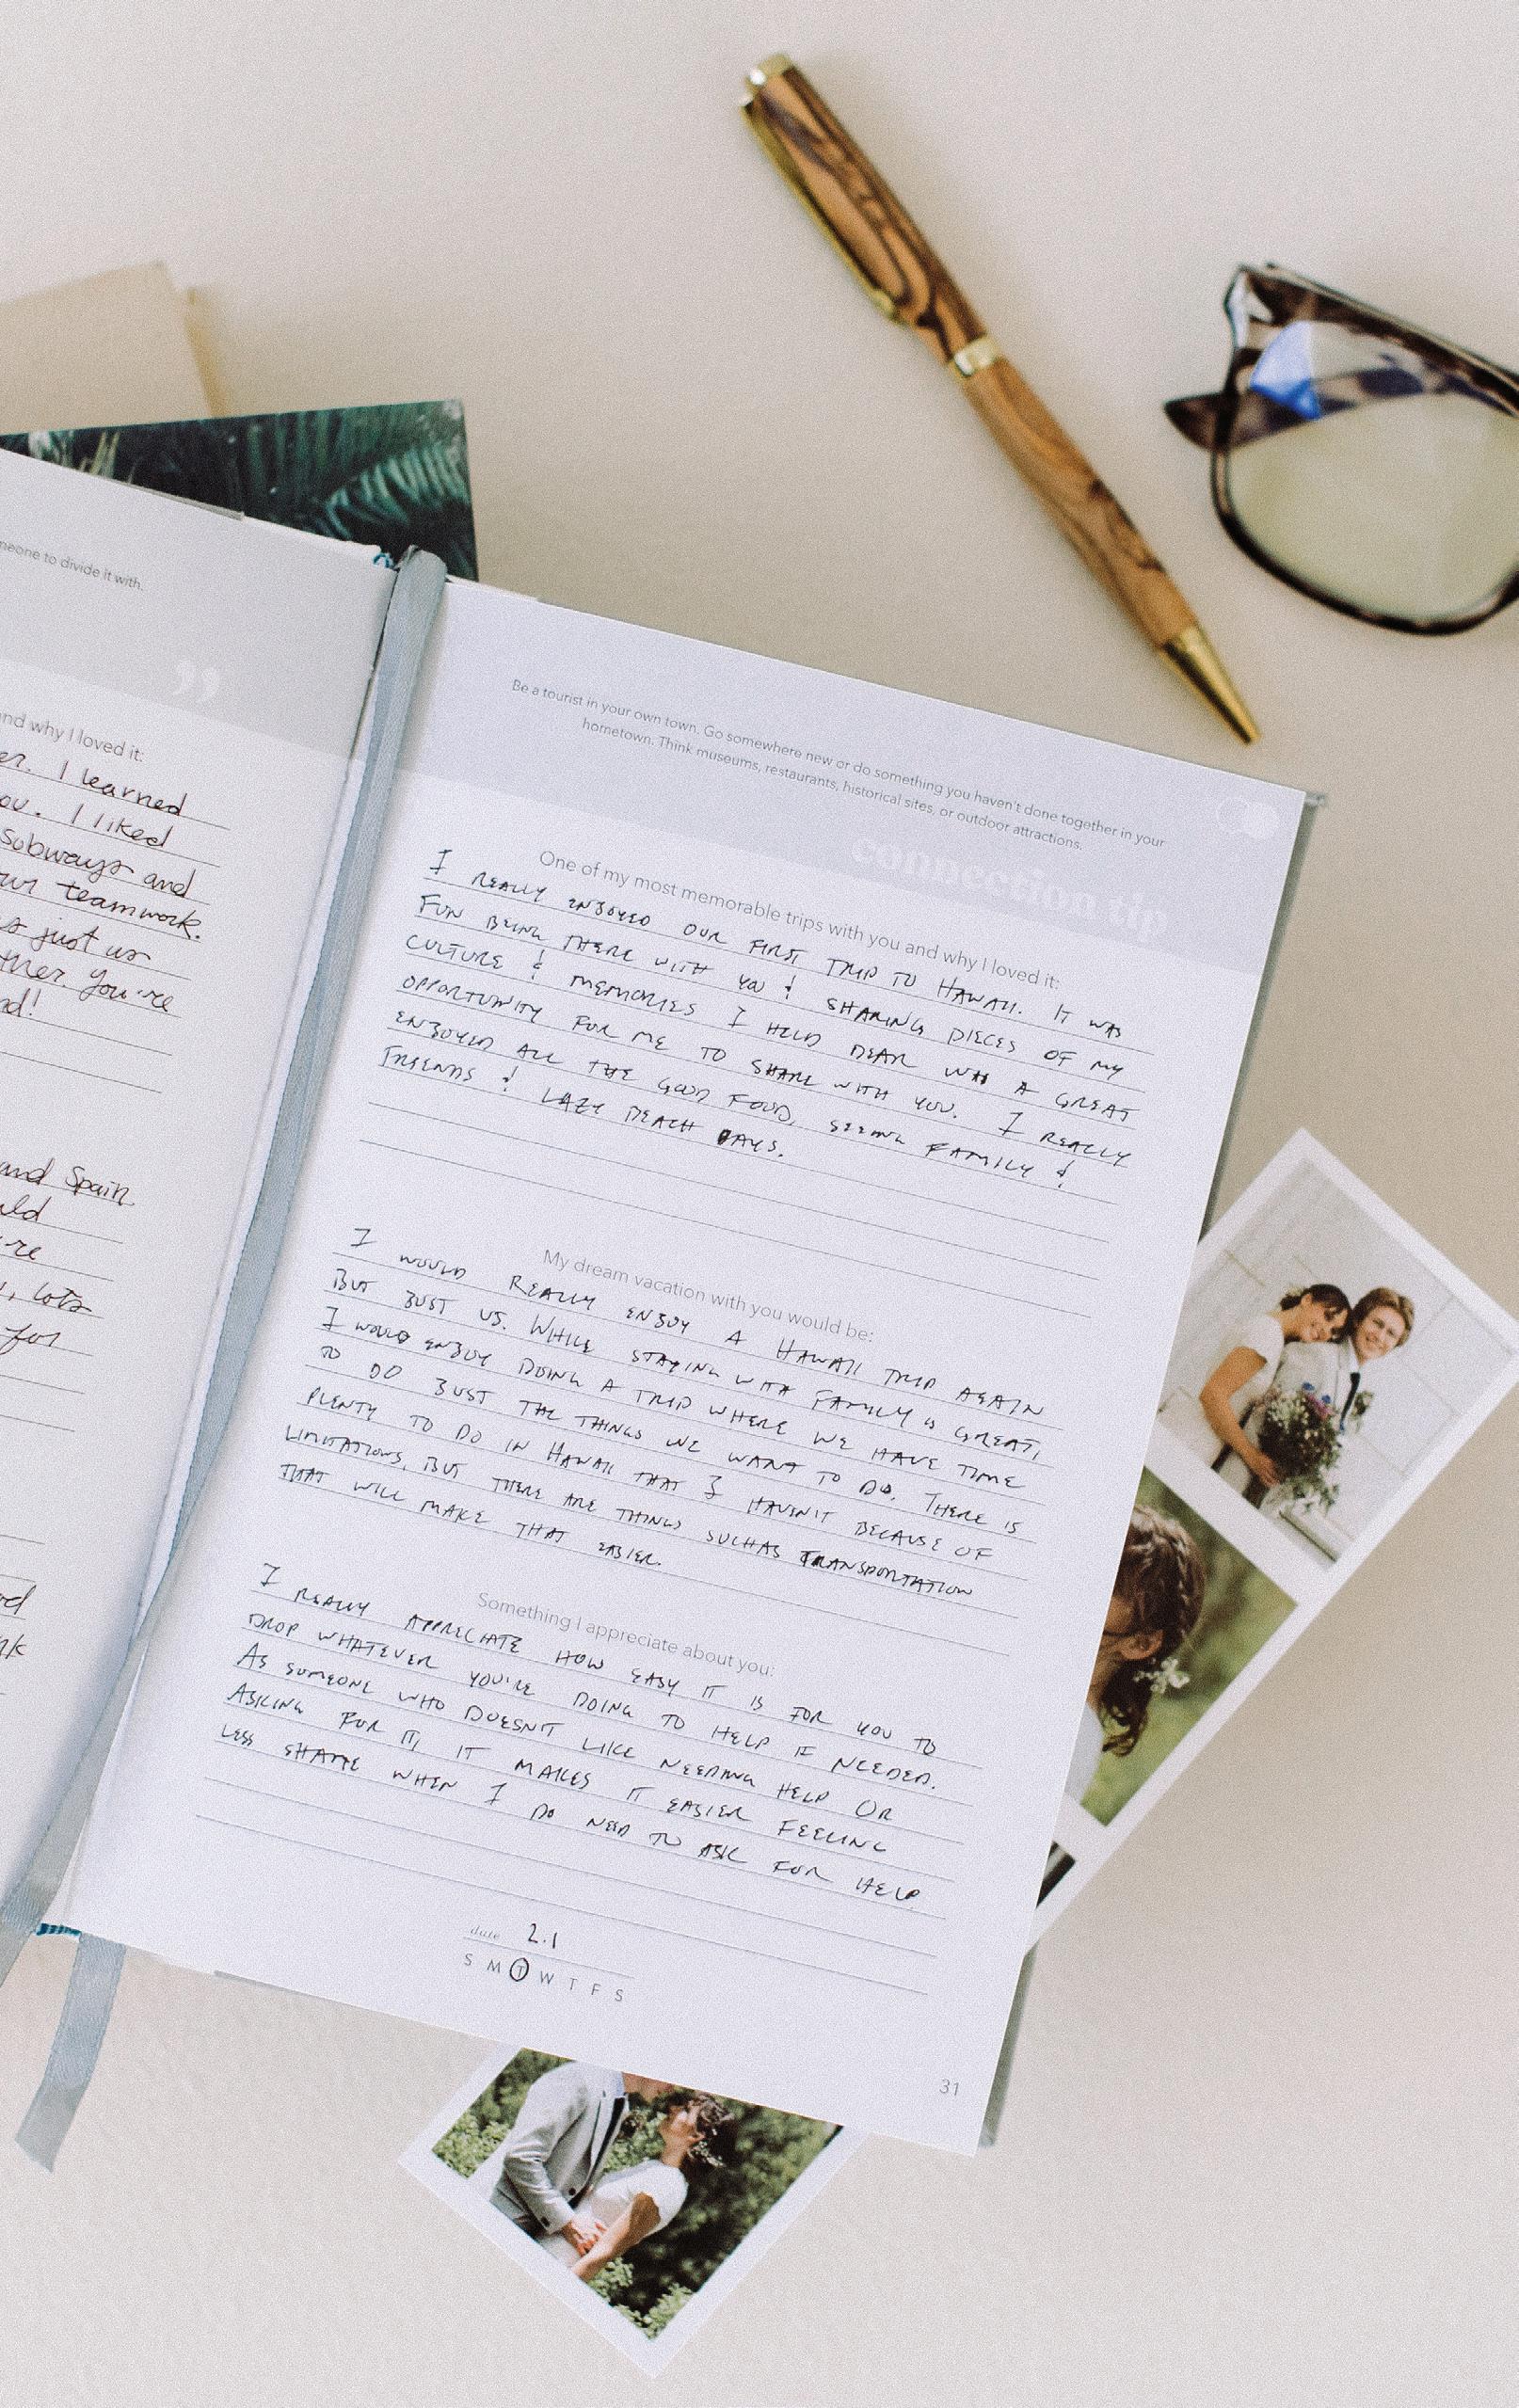 meone to divide it with.
”
nd why I loved it:
er. I learned
ou. I liked
subways and
ur teamwork.
is just us
ther. You're
nd!
and Spain
uld
re
, lots
for
od
nk
Be a tourist in your own town. Go somewhere new or do something you haven't done together in your
hometown. Think museums, restaurants, historical sites, or outdoor attractions.
connection tip
One of my most memorable trips with you and why I loved it:
I REALLY ENJOYED OUR FIRST TRIP TO HAWAII. IT WAS
FUN BEING THERE WITH YOU & SHARING PIECES OF MY
CULTURE & MEMORIES I HELD DEAR WAS A GREAT
OPPORTUNITY FOR ME TO SHARE WITH YOU. I REALLY
ENJOYED ALL THE GOOD FOOD, SEEING FAMILY &
FRIENDS & LAZY BEACH DAYS.
My dream vacation with you would be:
I WOULD REALLY ENJOY A HAWAII TRIP AGAIN
BUT JUST US. WHILE STAYING WITH FAMILY IS GREAT,
I WOULD ENJOY DOING A TRIP WHERE WE HAVE TIME
TO DO JUST THE THINGS WE WANT TO DO. THERE IS
PLENTY TO DO IN HAWAII THAT I HAVEN'T BECAUSE OF
LIMITATIONS, BUT THERE ARE THINGS SUCH AS TRANSPORTATION
THAT WILL MAKE THAT EASIER.
Something I appreciate about you:
I REALLY APPRECIATE HOW EASY IT IS FOR YOU TO
DROP WHATEVER YOU'RE DOING TO HELP IF NEEDED.
AS SOMEONE WHO DOESN'T LIKE NEEDING HELP OR
ASKING FOR IT, IT MAKES IT EASIER FEELING
LESS SHAME WHEN I DO NEED TO ASK FOR HELP.
date 2.1
S M T W T F S
31